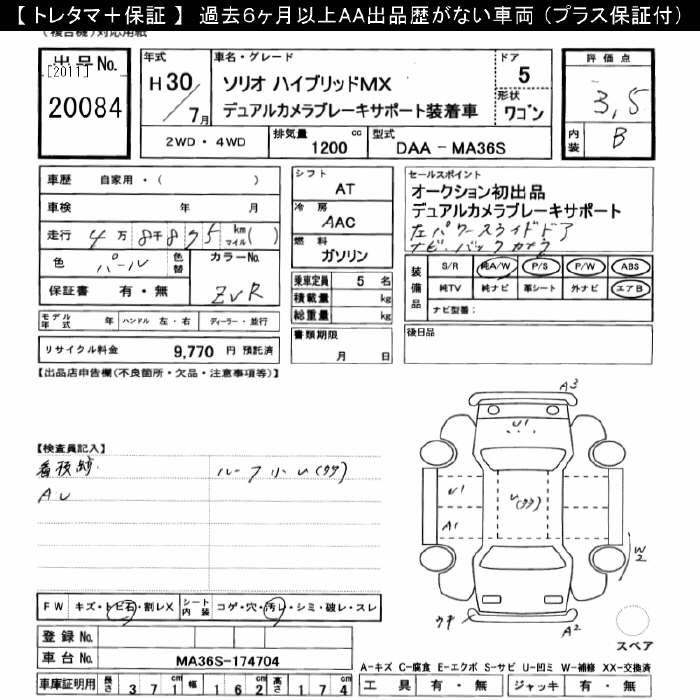 【 トレタマ＋保証 】 過去6ヶ月以上AA出品歴がない車両 (プラス保証付)
(複合機)対応用紙
出品No. [2011] 20084
年式 H30/7月
車名・グレード
ソリオ ハイブリッドMX
デュアルカメラブレーキサポート装着車
ドア 5
形状 ワゴン
評価点 3,5
内装 B
2WD・4WD
排気量 1200 cc
型式 DAA － MA36S
車歴 自家用・( )
車検 年 月
走行 4万8千895 km マイル( )
色 パール 色替
カラーNo. ZVR
保証書 有・無
モデル年式 年 ハンドル 左・右 ディーラー・並行
リサイクル料金 9,770 円 預託済
シフト AT
冷房 AAC
燃料 ガソリン
乗車定員 5 名
積載量 kg
総重量 kg
書類期限 月 日
セールスポイント
オークション初出品
デュアルカメラブレーキサポート
左パワースライドドア
ナビ・バックカメラ
装備品
S/R 純A/W P/S P/W ABS
純TV 純ナビ 革シート 外ナビ エアB
ナビ型番：
後日品
【出品店申告欄(不良箇所・欠品・注意事項等)】
【検査員記入】
ルーフ小U(タタ)
AU
A3
U1
U1
U(タタ)
A1
W2
ウキ
A2
スペア
FW キズ・トビ石・割レX シート内装 コゲ・穴・汚レ・シミ・破レ・スレ
登録No.
車台No. MA36S-174704
車庫証明用 長さ 371 幅 162 高さ 174
A－キズ C－腐食 E－エクボ S－サビ U－凹ミ W－補修 XX－交換済
工具 有・無 ジャッキ 有・無